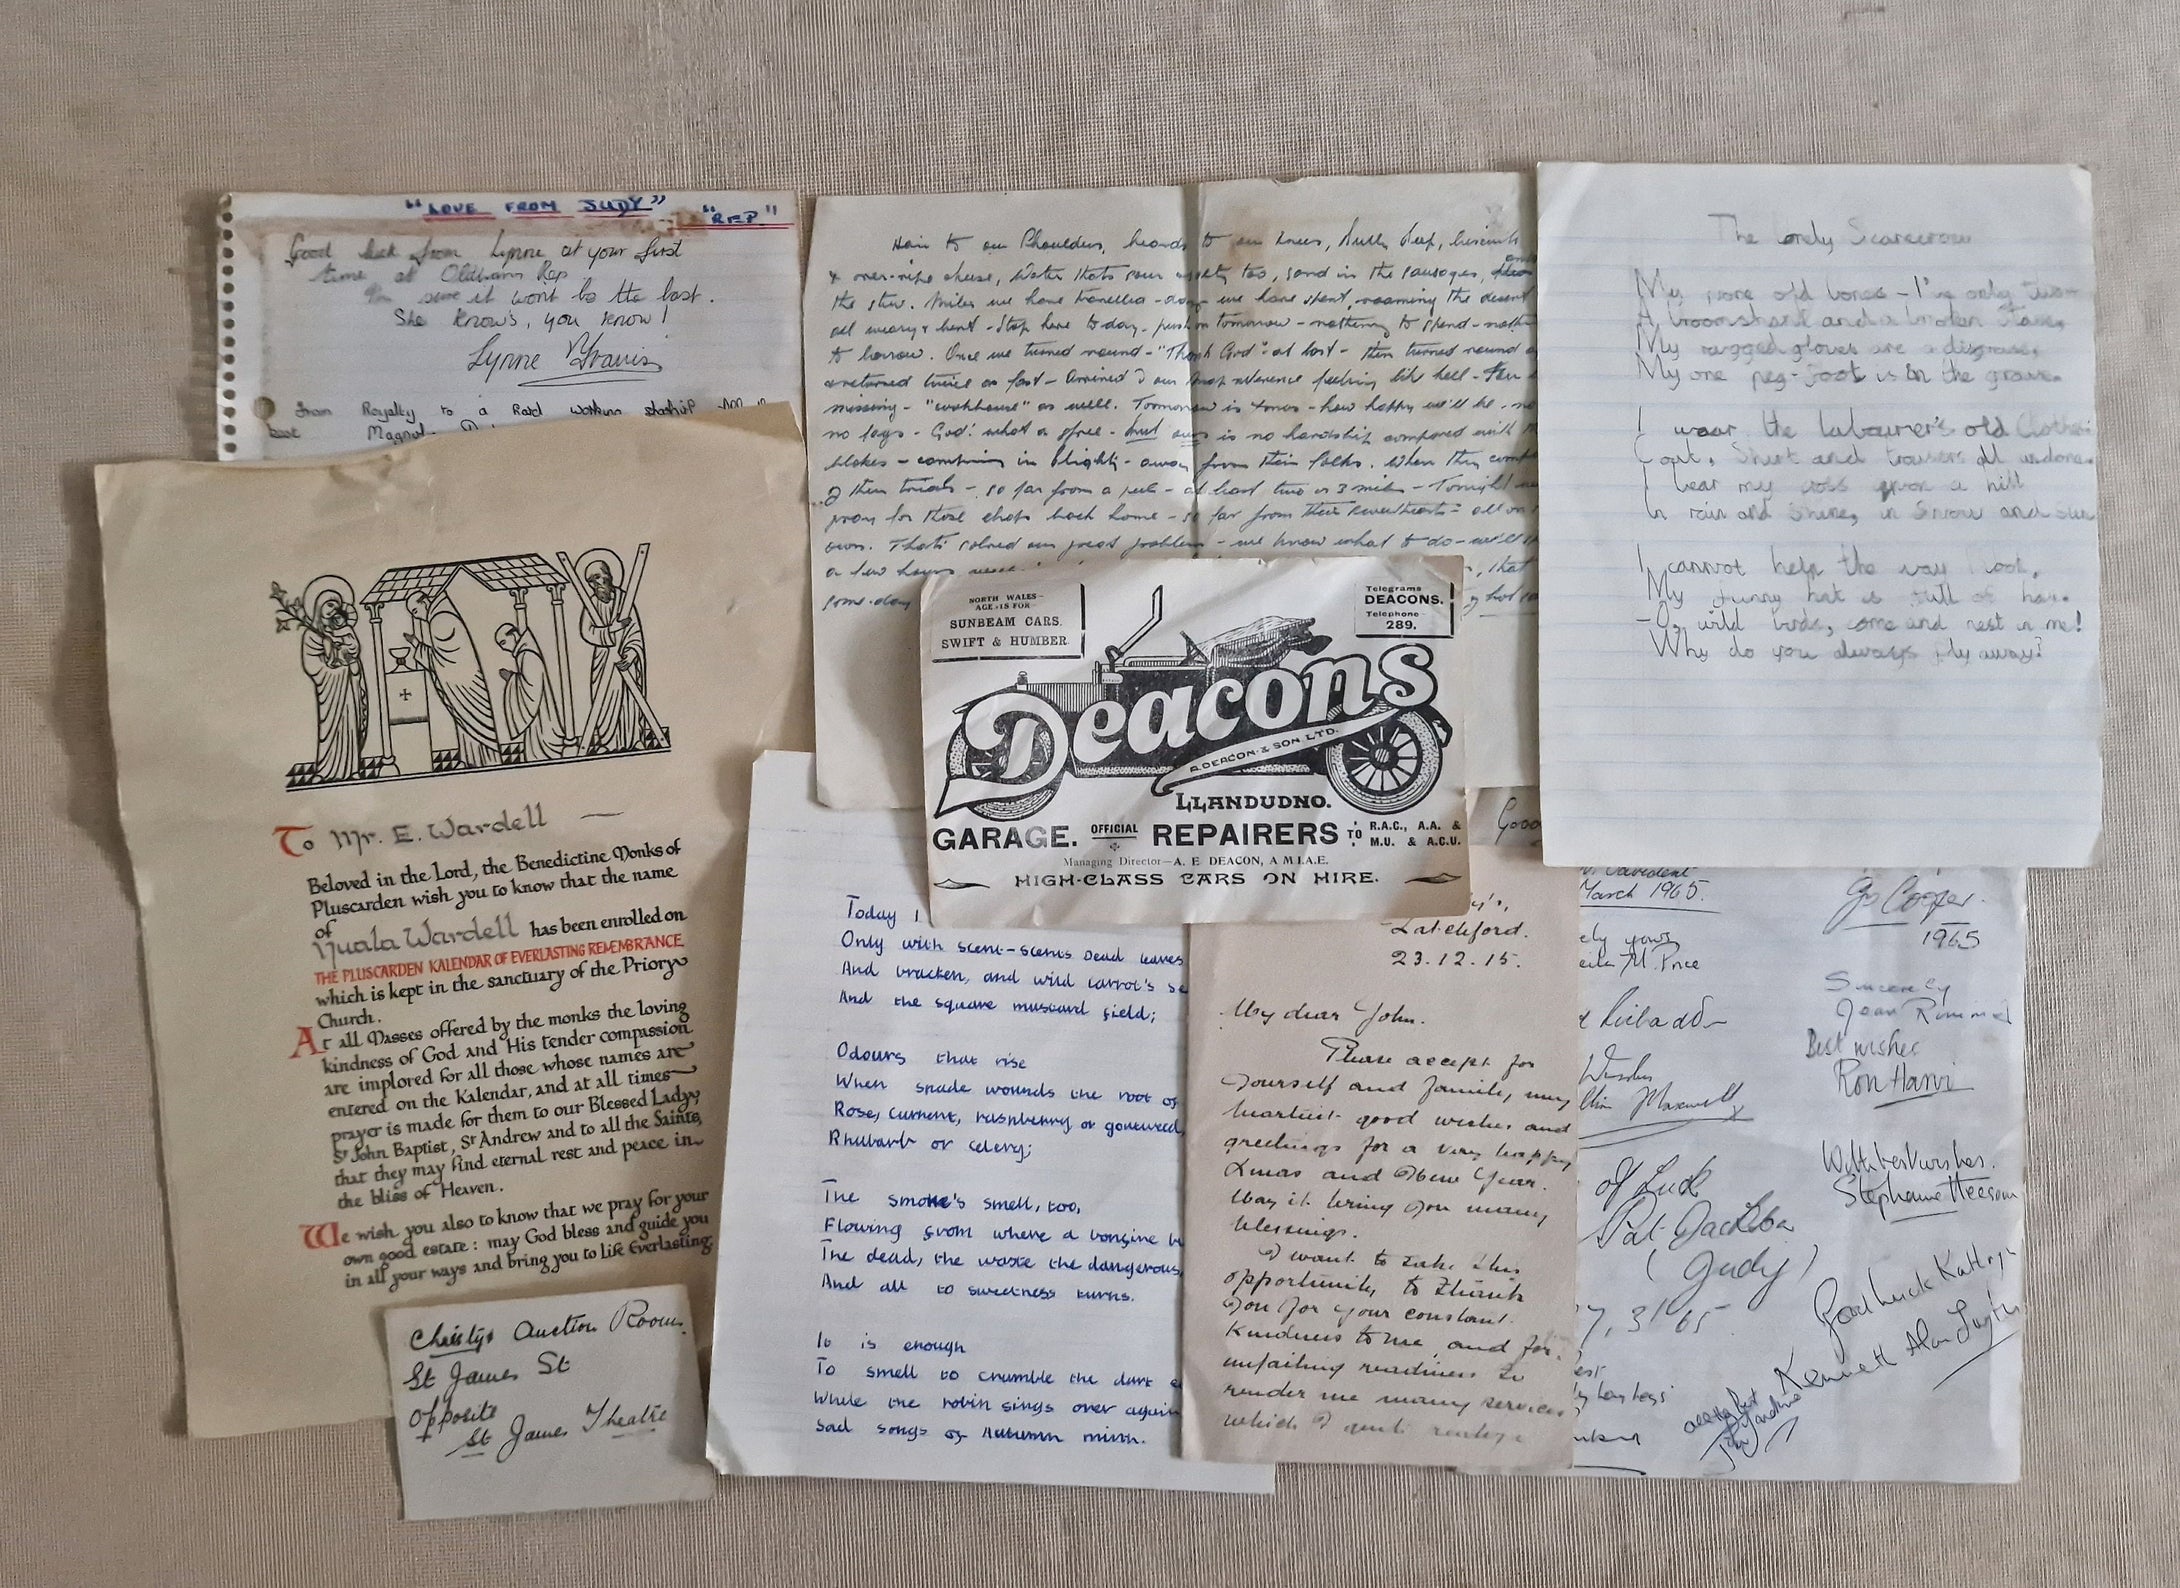 "LOVE FROM JUDY"
"REP"
Good luck from Lynne at your first
time at Oldham Rep
I'm sure it wont be the last.
She knows, you know!
Lynne
From Royalty to a
Hair to our shoulders, beards to our knees, bully beef, biscuits
& over-ripe cheese, Water thats sour & salty too, sand in the sausages, and
the stew. Miles we have travelled - days we have spent, roaming the desert
all weary & bent - Stop here to-day - push on tomorrow - nothing to spend -
to borrow. Once we turned round - "Thank God" at last - then turned round
& returned twice as fast - Arrived our map reference feeling like hell -
missing - "cookhouse" as well. Tomorrow is Xmas - how happy we'll be - no
no fags - God! what a spree - but ours is no hardship compared with
blokes - in blighty - away from their folks. When they
of their trials - so far from a pub - at least two or 3 miles - Tonight
pray for those chaps back home - so far from their sweethearts - all on
own. That's solved our great problem - we know what to do - we'll
a few hours
, that
some-day
The Lonely Scarecrow
My poor old bones - I've only two -
A broomshank and a broken stave,
My ragged gloves are a disgrace,
My one peg-foot is in the grave.
I wear the labourer's old clothes:
Coat, Shirt and trousers all undone.
I bear my cross upon a hill
In rain and Shine, in Snow and sun
I cannot help the way I look.
My funny hat is full of hay.
-O, wild birds, come and nest in me!
Why do you always fly away?
To Mr. E. Wardell
Beloved in the Lord, the Benedictine Monks of
Pluscarden wish you to know that the name
of
Nuala Wardell has been enrolled on
THE PLUSCARDEN KALENDAR OF EVERLASTING REMEMBRANCE
which is kept in the sanctuary of the Priory
Church.
At all Masses offered by the monks the loving
kindness of God and His tender compassion
are implored for all those whose names are
entered on the Kalendar, and at all times
prayer is made for them to our Blessed Lady,
St John Baptist, St Andrew and to all the Saints,
that they may find eternal rest and peace in
the bliss of Heaven.
We wish you also to know that we pray for your
own good estate: may God bless and guide you
in all your ways and bring you to life Everlasting.
Christys Auction Rooms.
St James St
opposite
St James Theatre
NORTH WALES
AGE IS FOR
SUNBEAM CARS.
SWIFT & HUMBER.
Telegrams
DEACONS.
Telephone
289.
Deacons
A. DEACON & SON LTD.
LLANDUDNO.
GARAGE. OFFICIAL REPAIRERS TO R.A.C., A.A. &
M.U. & A.C.U.
Managing Director—A. E DEACON, A M.I.A.E.
HIGH-CLASS CARS ON HIRE.
Today I
Only with scent-scents dead leaves
And bracken, and wild carrot's se
And the square mustard field;
Odours that rise
When spade wounds the root of
Rose, current, raspberry or goutweed,
Rhubarb or celery;
The smoke's smell, too,
Flowing from where a bonfire bu
The dead, the waste the dangerous,
And all to sweetness turns.
It is enough
To smell to crumble the dark e
While the robin sings over again
Sad songs of Autumn mirth.
Latchford.
23.12.15.
My dear John.
Please accept for
yourself and family, my
heartiest good wishes and
greetings for a very happy
Xmas and New Year.
May it bring you many
blessings.
I want to take this
opportunity to thank
you for your constant
kindness to me, and for
unfailing readiness to
render me many services
which I
Good
March 1965.
ely yours
eila M. Price
Jo Cooper.
1965
Sincerely
Jean Rimmer
Best wishes
Ron
Wishes
Maxwell
of Luck
Pat
(Judy)
7, 3 '65
With best wishes.
Stephanie
Good luck Kathryn
Kenneth Alan
all the best